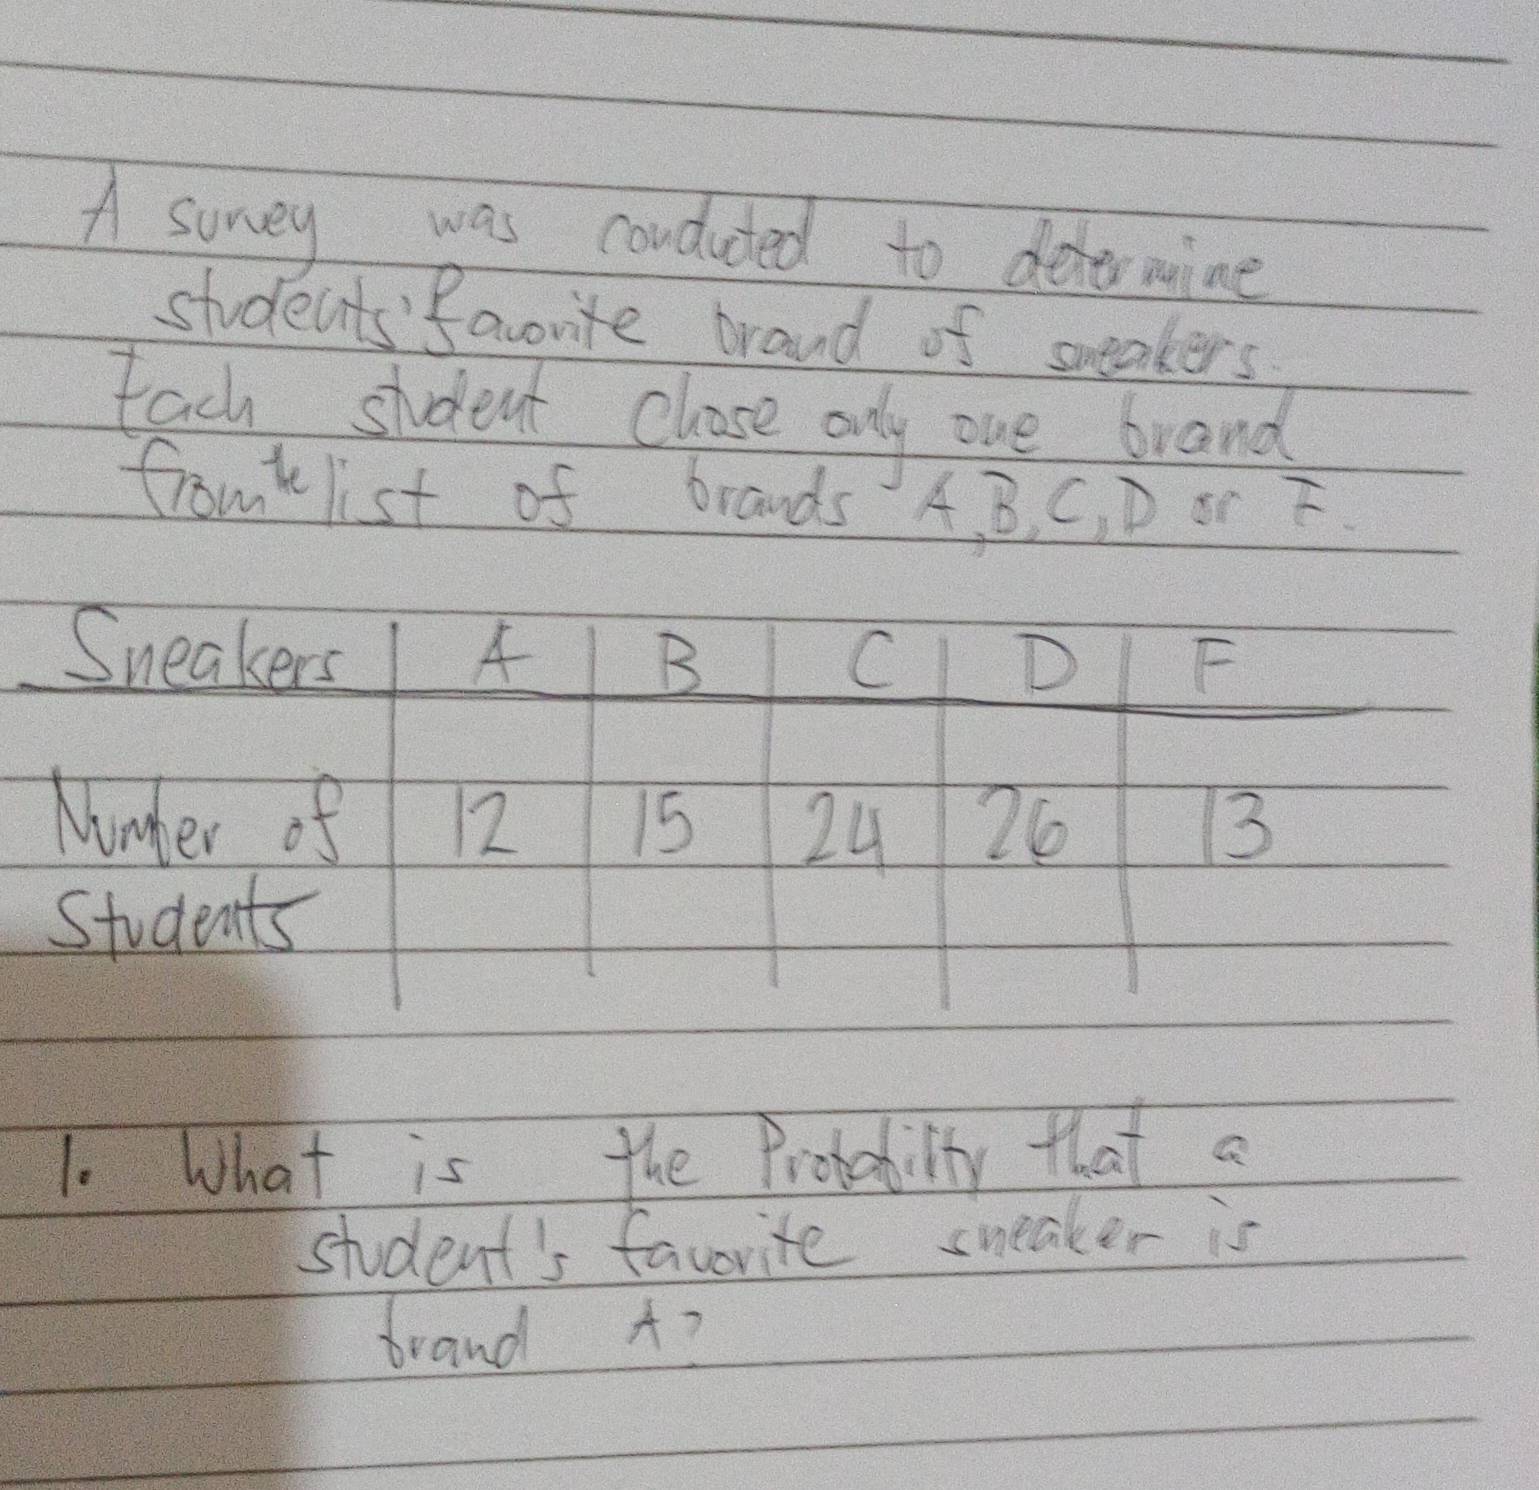 A survey was conducted to determine
students' favorite brand of sneakers.
Each student chose only one brand
from the list of brands A, B, C, D or F.
Sneakers A B C D F
Number of 12 15 24 26 13
Students
1. What is the Probability that a
student's favorite sneaker is
brand A?